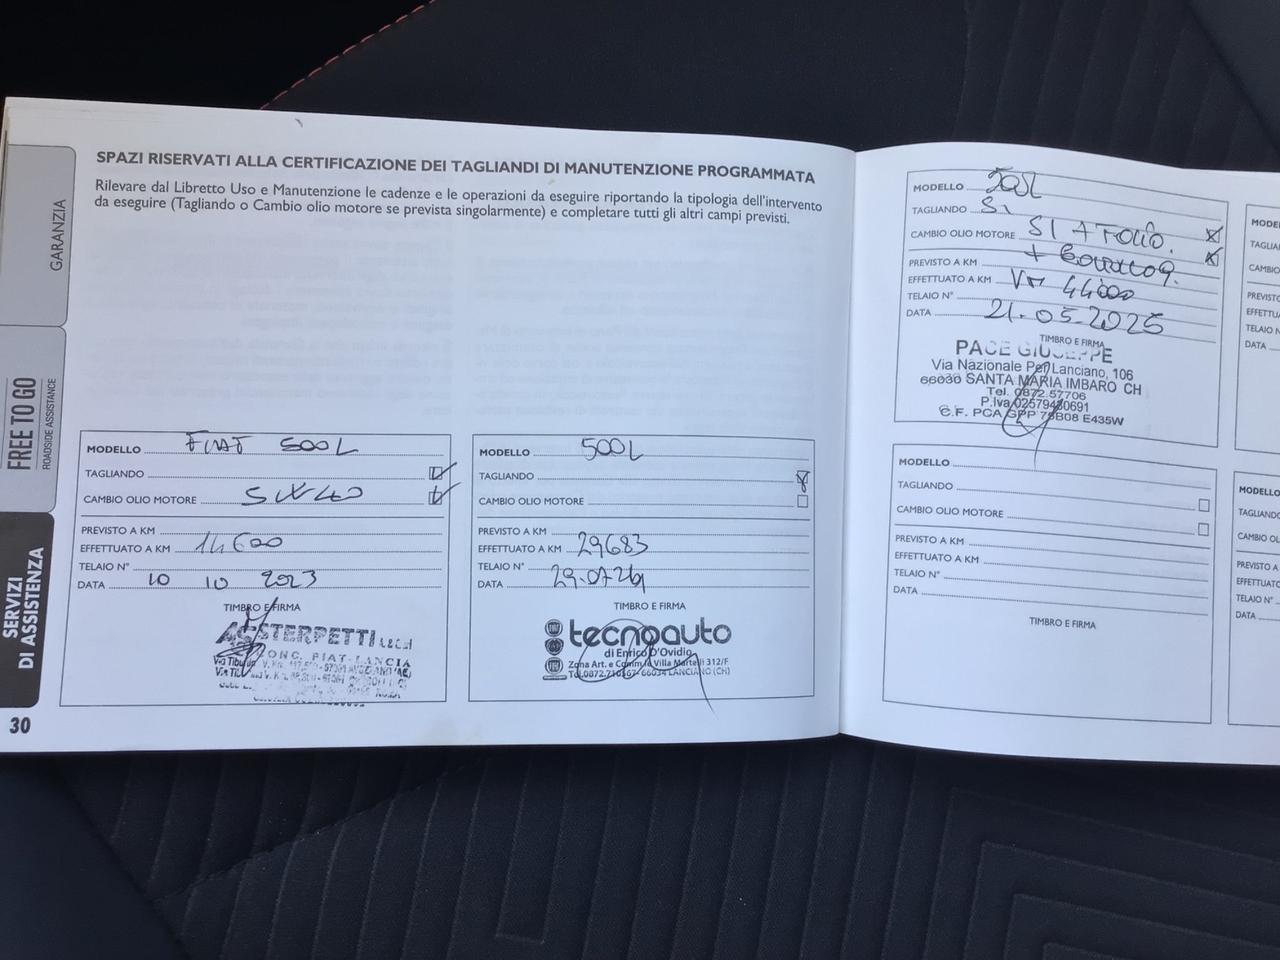 GARANZIA
FREE TO GO
ROADSIDE ASSISTANCE
SERVIZI
DI ASSISTENZA
30
SPAZI RISERVATI ALLA CERTIFICAZIONE DEI TAGLIANDI DI MANUTENZIONE PROGRAMMATA
Rilevare dal Libretto Uso e Manutenzione le cadenze e le operazioni da eseguire riportando la tipologia dell'intervento
da eseguire (Tagliando o Cambio olio motore se prevista singolarmente) e completare tutti gli altri campi previsti.
MODELLO FIAT 500L
TAGLIANDO
CAMBIO OLIO MOTORE
PREVISTO A KM
EFFETTUATO A KM 14600
TELAIO N°
DATA 10 10 2023
TIMBRO E FIRMA
CONC. FIAT-LANCIA
MODELLO 500L
TAGLIANDO
CAMBIO OLIO MOTORE
PREVISTO A KM
EFFETTUATO A KM 29683
TELAIO N°
DATA 29.07.24
TIMBRO E FIRMA
tecnoauto
di Enrico D'Ovidio
Zona Art. e Comm.le Villa Martelli 312/F
66034 LANCIANO (CH)
MODELLO 500L
TAGLIANDO SI
CAMBIO OLIO MOTORE SI
PREVISTO A KM
EFFETTUATO A KM 44000
TELAIO N°
DATA 21.05.2025
TIMBRO E FIRMA
PACE GIUSEPPE
Via Nazionale Per Lanciano, 106
66030 SANTA MARIA IMBARO CH
Tel. 0872.57706
P.Iva 02579480691
C.F. PCA GPP 75B08 E435W
MODELLO
TAGLIANDO
CAMBIO OLIO MOTORE
PREVISTO A KM
EFFETTUATO A KM
TELAIO N°
DATA
TIMBRO E FIRMA
TELAIO N°
DATA
MODELLO
TELAIO N°
DATA